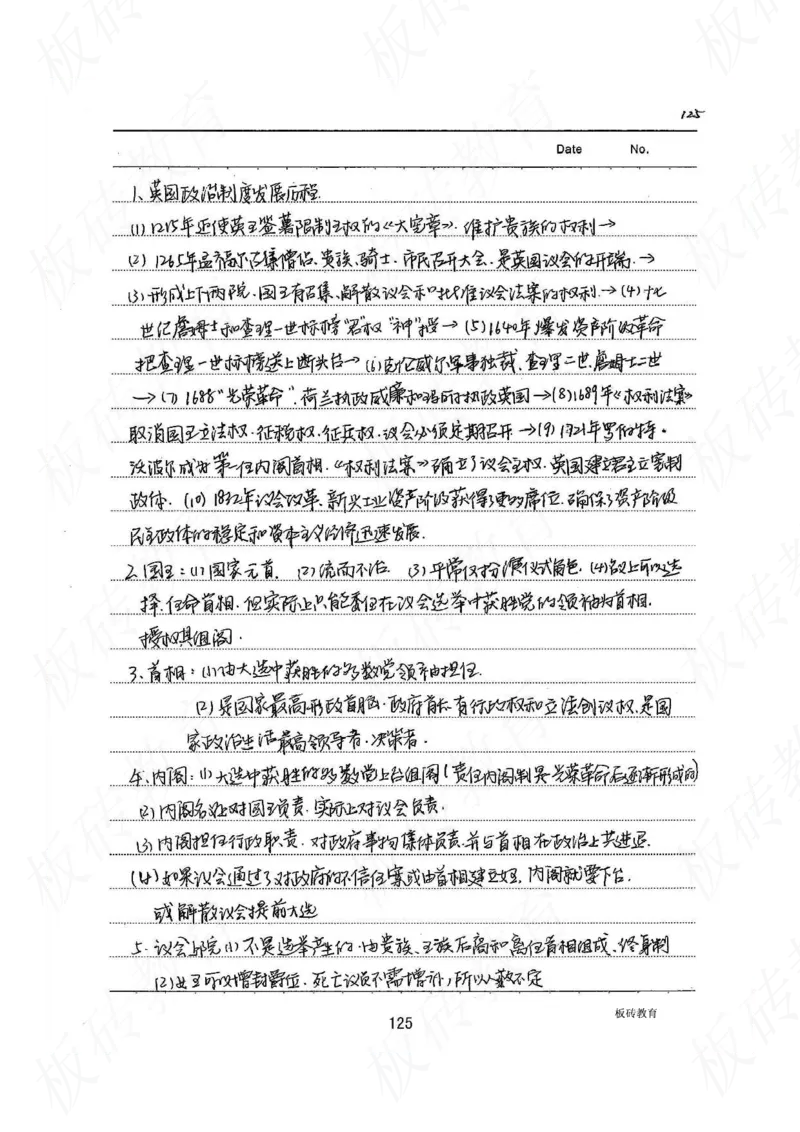 125
Date No.
1、英国政治制度发展历程.
(1) 1215年迫使英王签署限制王权的《大宪章》. 维护贵族的权利→
(2) 1265年孟福尔召集僧侣、贵族、骑士、市民召开大会、是英国议会的开端. →
(3) 形成上下两院、国王有召集、解散议会和批准议会法案的权利.→(4) 十七
世纪詹姆士和查理一世标榜"君"权"神"授→ (5) 1640年爆发资产阶级革命
把查理一世标榜送上断头台→ (6) 克伦威尔军事独裁、查理二世、詹姆士二世
→(7) 1688"光荣革命". 荷兰执政威廉和玛丽执政英国→(8)1689年《权利法案》
取消国王立法权、征税权、征兵权、议会必须定期召开→(9) 1721年罗伯特·
沃波尔成为第一任内阁首相.《权利法案》确立了议会主权、英国建立君主立宪制
政体. (10) 1832年议会改革、新兴工业资产阶级获得了更多席位、确保了资产阶级
民主政体的稳定和资本主义经济迅速发展.
2、国王:(1)国家元首. (2) 统而不治. (3) 平常仅扮演仪式角色. (4)名义上可以选
择、任命首相、但实际上只能委任在议会选举中获胜党的领袖为首相.
授权其组阁.
3、首相:(1)由大选中获胜的多数党领袖担任.
(2) 是国家最高行政首脑、政府首长、有行政权和立法创议权、是国
家政治生活最高领导者、决策者.
4、内阁:(1)大选中获胜的多数党上台组阁(责任内阁制是光荣革命后逐渐形成的)
(2)内阁名义上对国王负责、实际上对议会负责.
(3) 内阁担任行政职责、对政府事物集体负责、并与首相在政治上共进退.
(4) 如果议会通过了对政府的不信任案或由首相建立, 内阁就要下台.
或解散议会提前大选
5、议会上院(1) 不是选举产生的、由贵族、王族后裔和离任首相组成、终身制
(2)女王可以增封爵位、死亡议员不需增补,所以人数不定
125
板砖教育